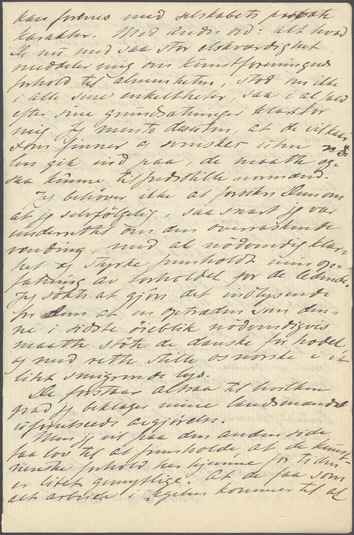 kan forenes med selskabets private
karakter. Med andre ord: alt hvad
De nu med saa stor elskværdighet
meddeler mig om kunstforeningens
forhold til akademiet, stod om ikke
i alle sine enkeltheter, saa i al fald
efter sine grundsætninger klart for
mig. Jeg mente desuten, at de vilkaar
som finner og svensker uten
len gik ind paa, de maatte og-
saa kunne tilfredsstille normænd.
Jeg behøver ikke at forsikre Dem om
at jeg selvfølgelig, saa snart jeg var
underrettet om den overraskende
vending, med al nødvendig klar-
het og styrke fremholdt min op-
fatning av forholdet for de ledende.
Jeg søkte at gjøre det indlysende
for dem at en optræden som den-
ne i sidste øieblik nødvendigvis
maatte støte de danske for hodet
og med rette stille os norske i et
litet smigrende lys.
De forstaar altsaa til hvilken
grad jeg beklager mine landsmænds
avgjørelse.
Men jeg vil paa den anden side
faa lov til at fremholde, at de kunst-
neriske forhold her hjemme for tiden
er litet gemytlige. At de faa som
alt arbeide i regelen kommer til at